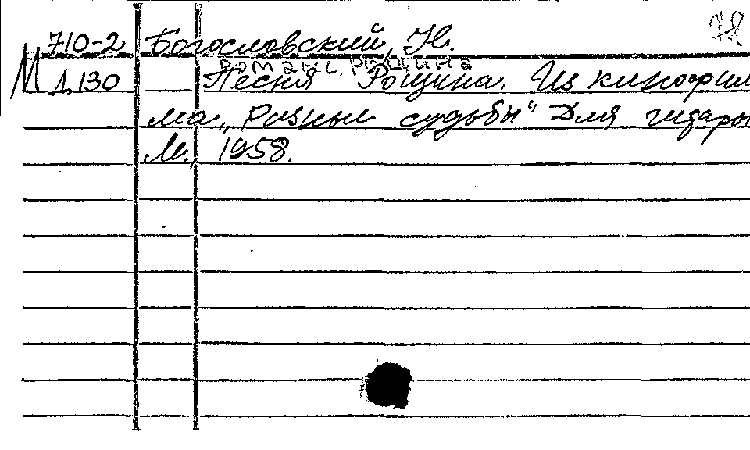 710-2 Богословский, Н.
романс Рощина
М Д 130 Песня Рощина. Из кинофиль
ма „Разные судьбы" Для гитары
М., 1958.